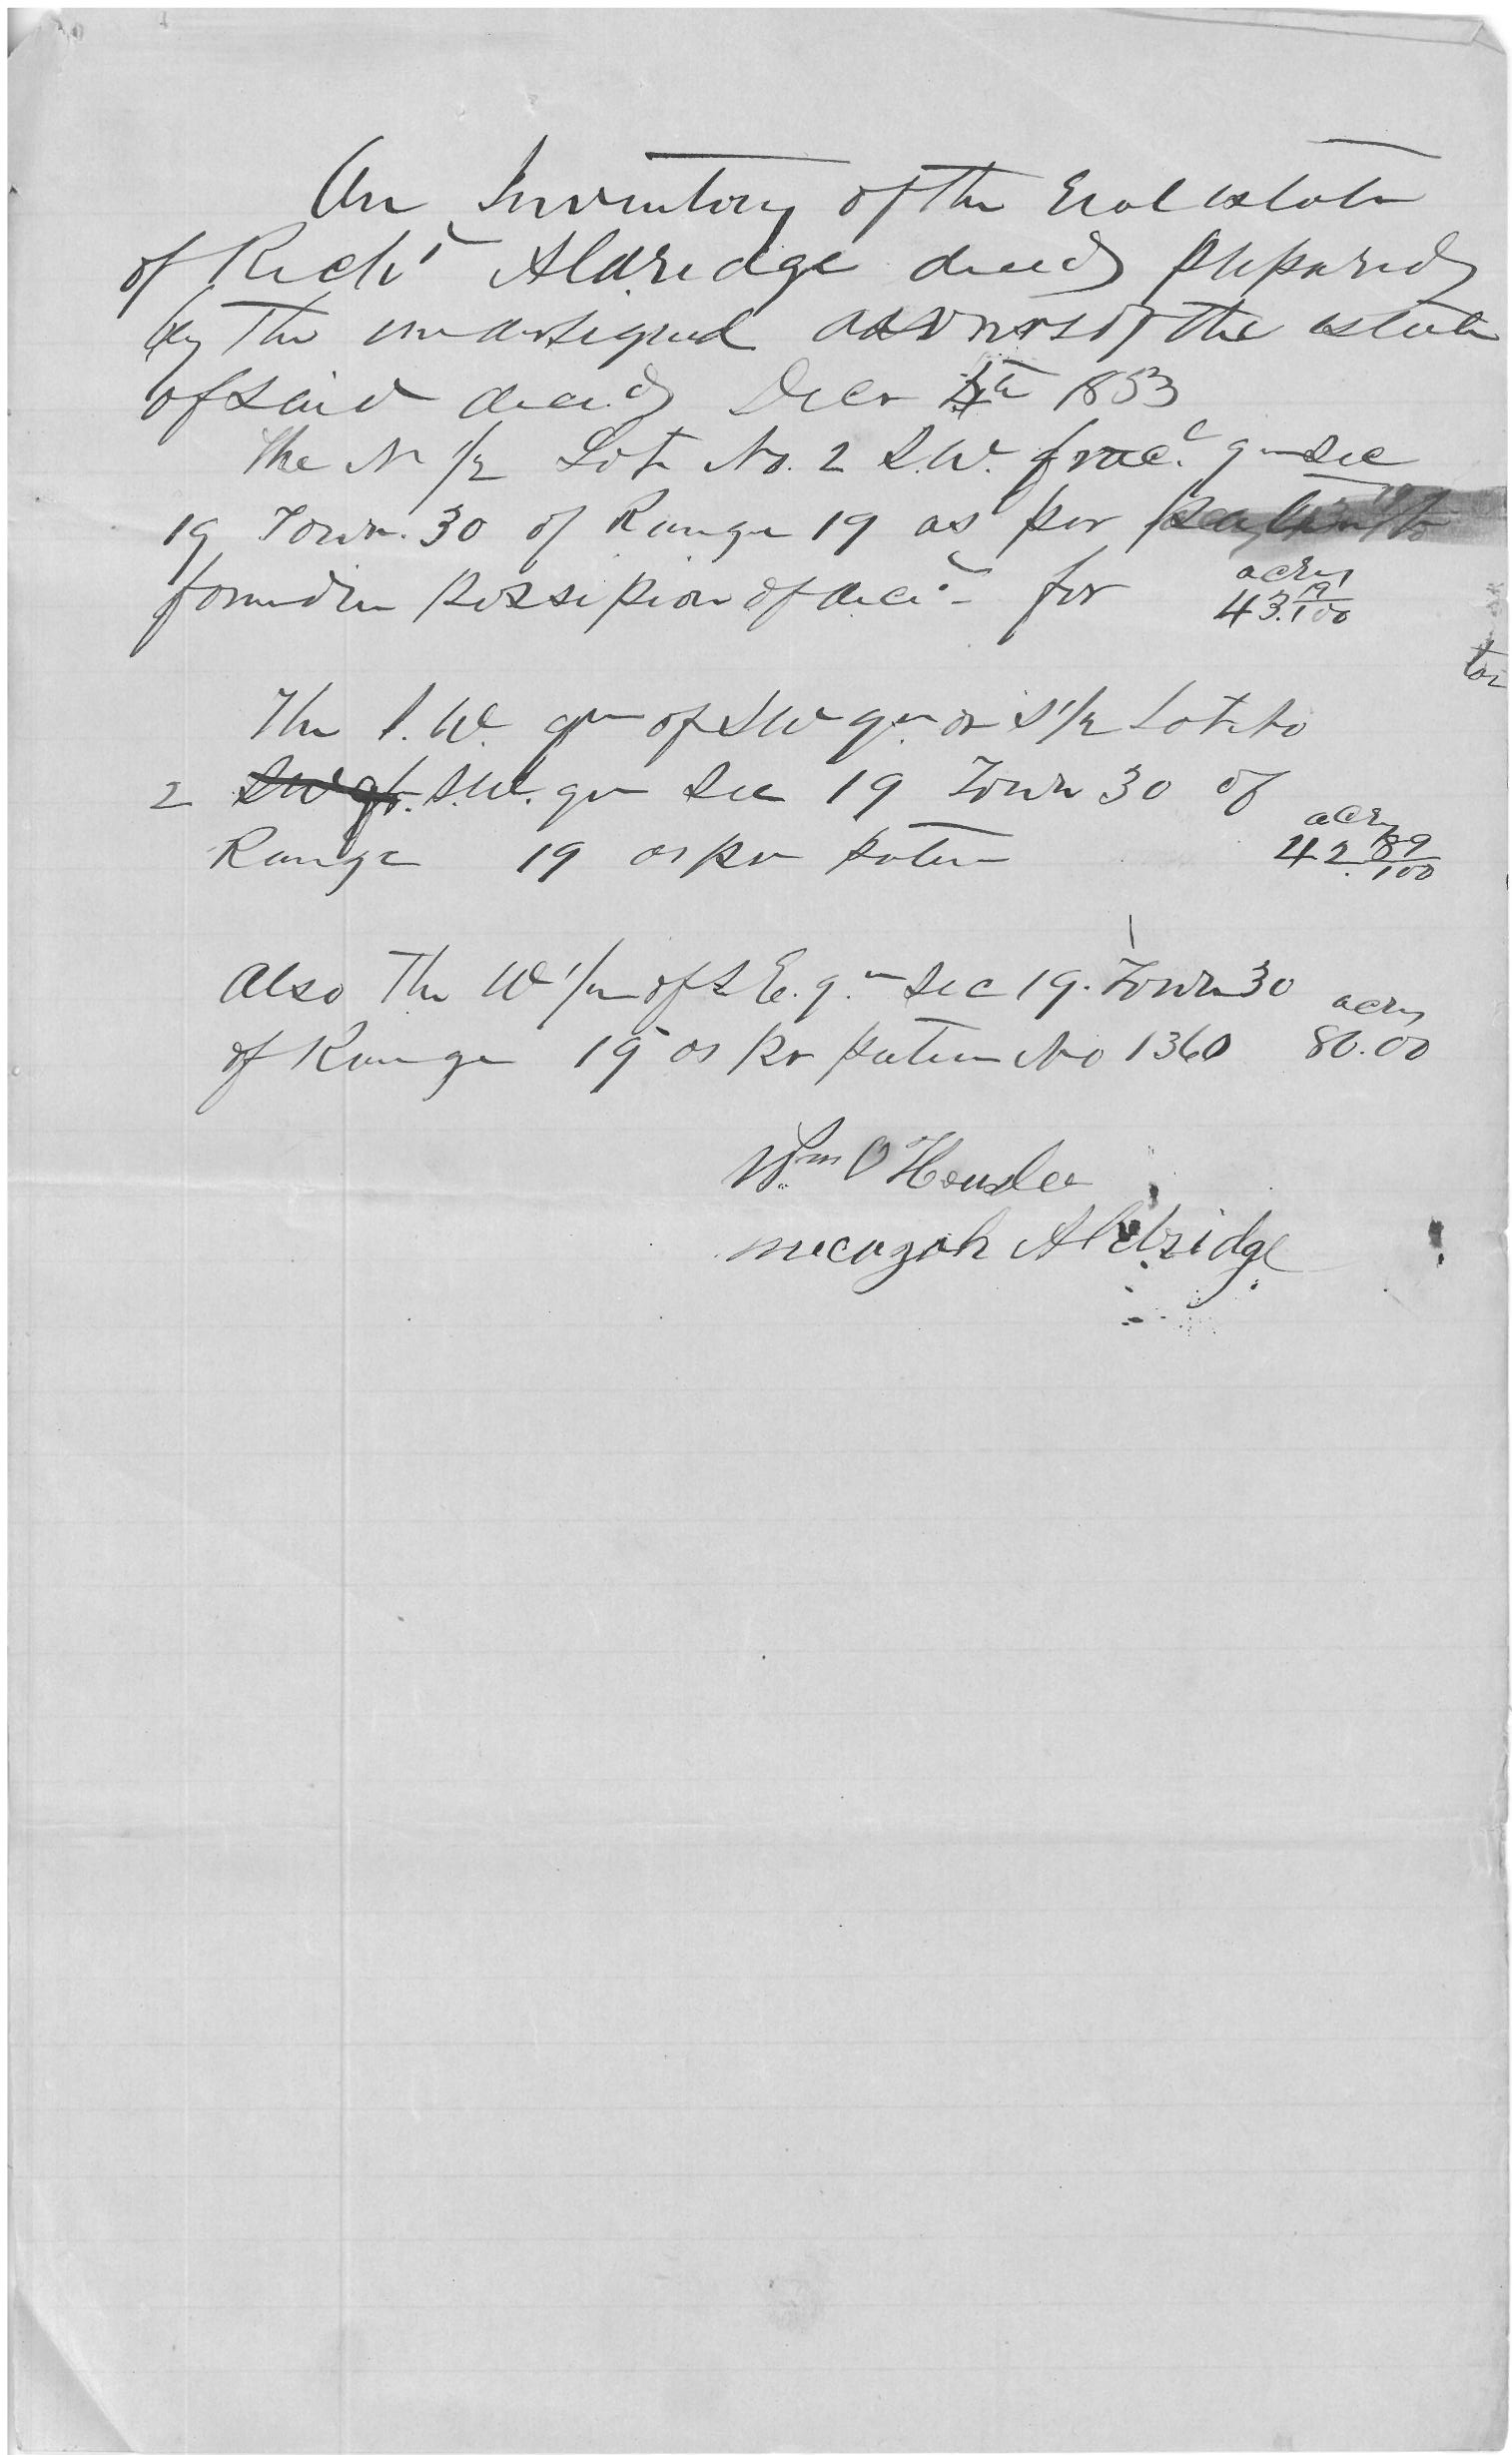 An Inventory of the Real estate
of Rich'd Aldridge decd prepared
by the undersigned admrs of the estate
of said decd Decr 1853
The N 1/2 Lot No. 2 S.W. frac. qr Sec
19 Town. 30 of Range 19 as per
found in possession of decd for acres 43.19/100
The S.W. qr of SW qr or S 1/2 Lot No
2 S.W. qr Sec 19 Town 30 of
Range 19 as per paten acres 42.89/100
Also The W 1/2 of S E. qr Sec 19. Town 30
of Range 19 as pr paten No 1360 acres 80.00
Wm O Housler
mecagah Aldridge